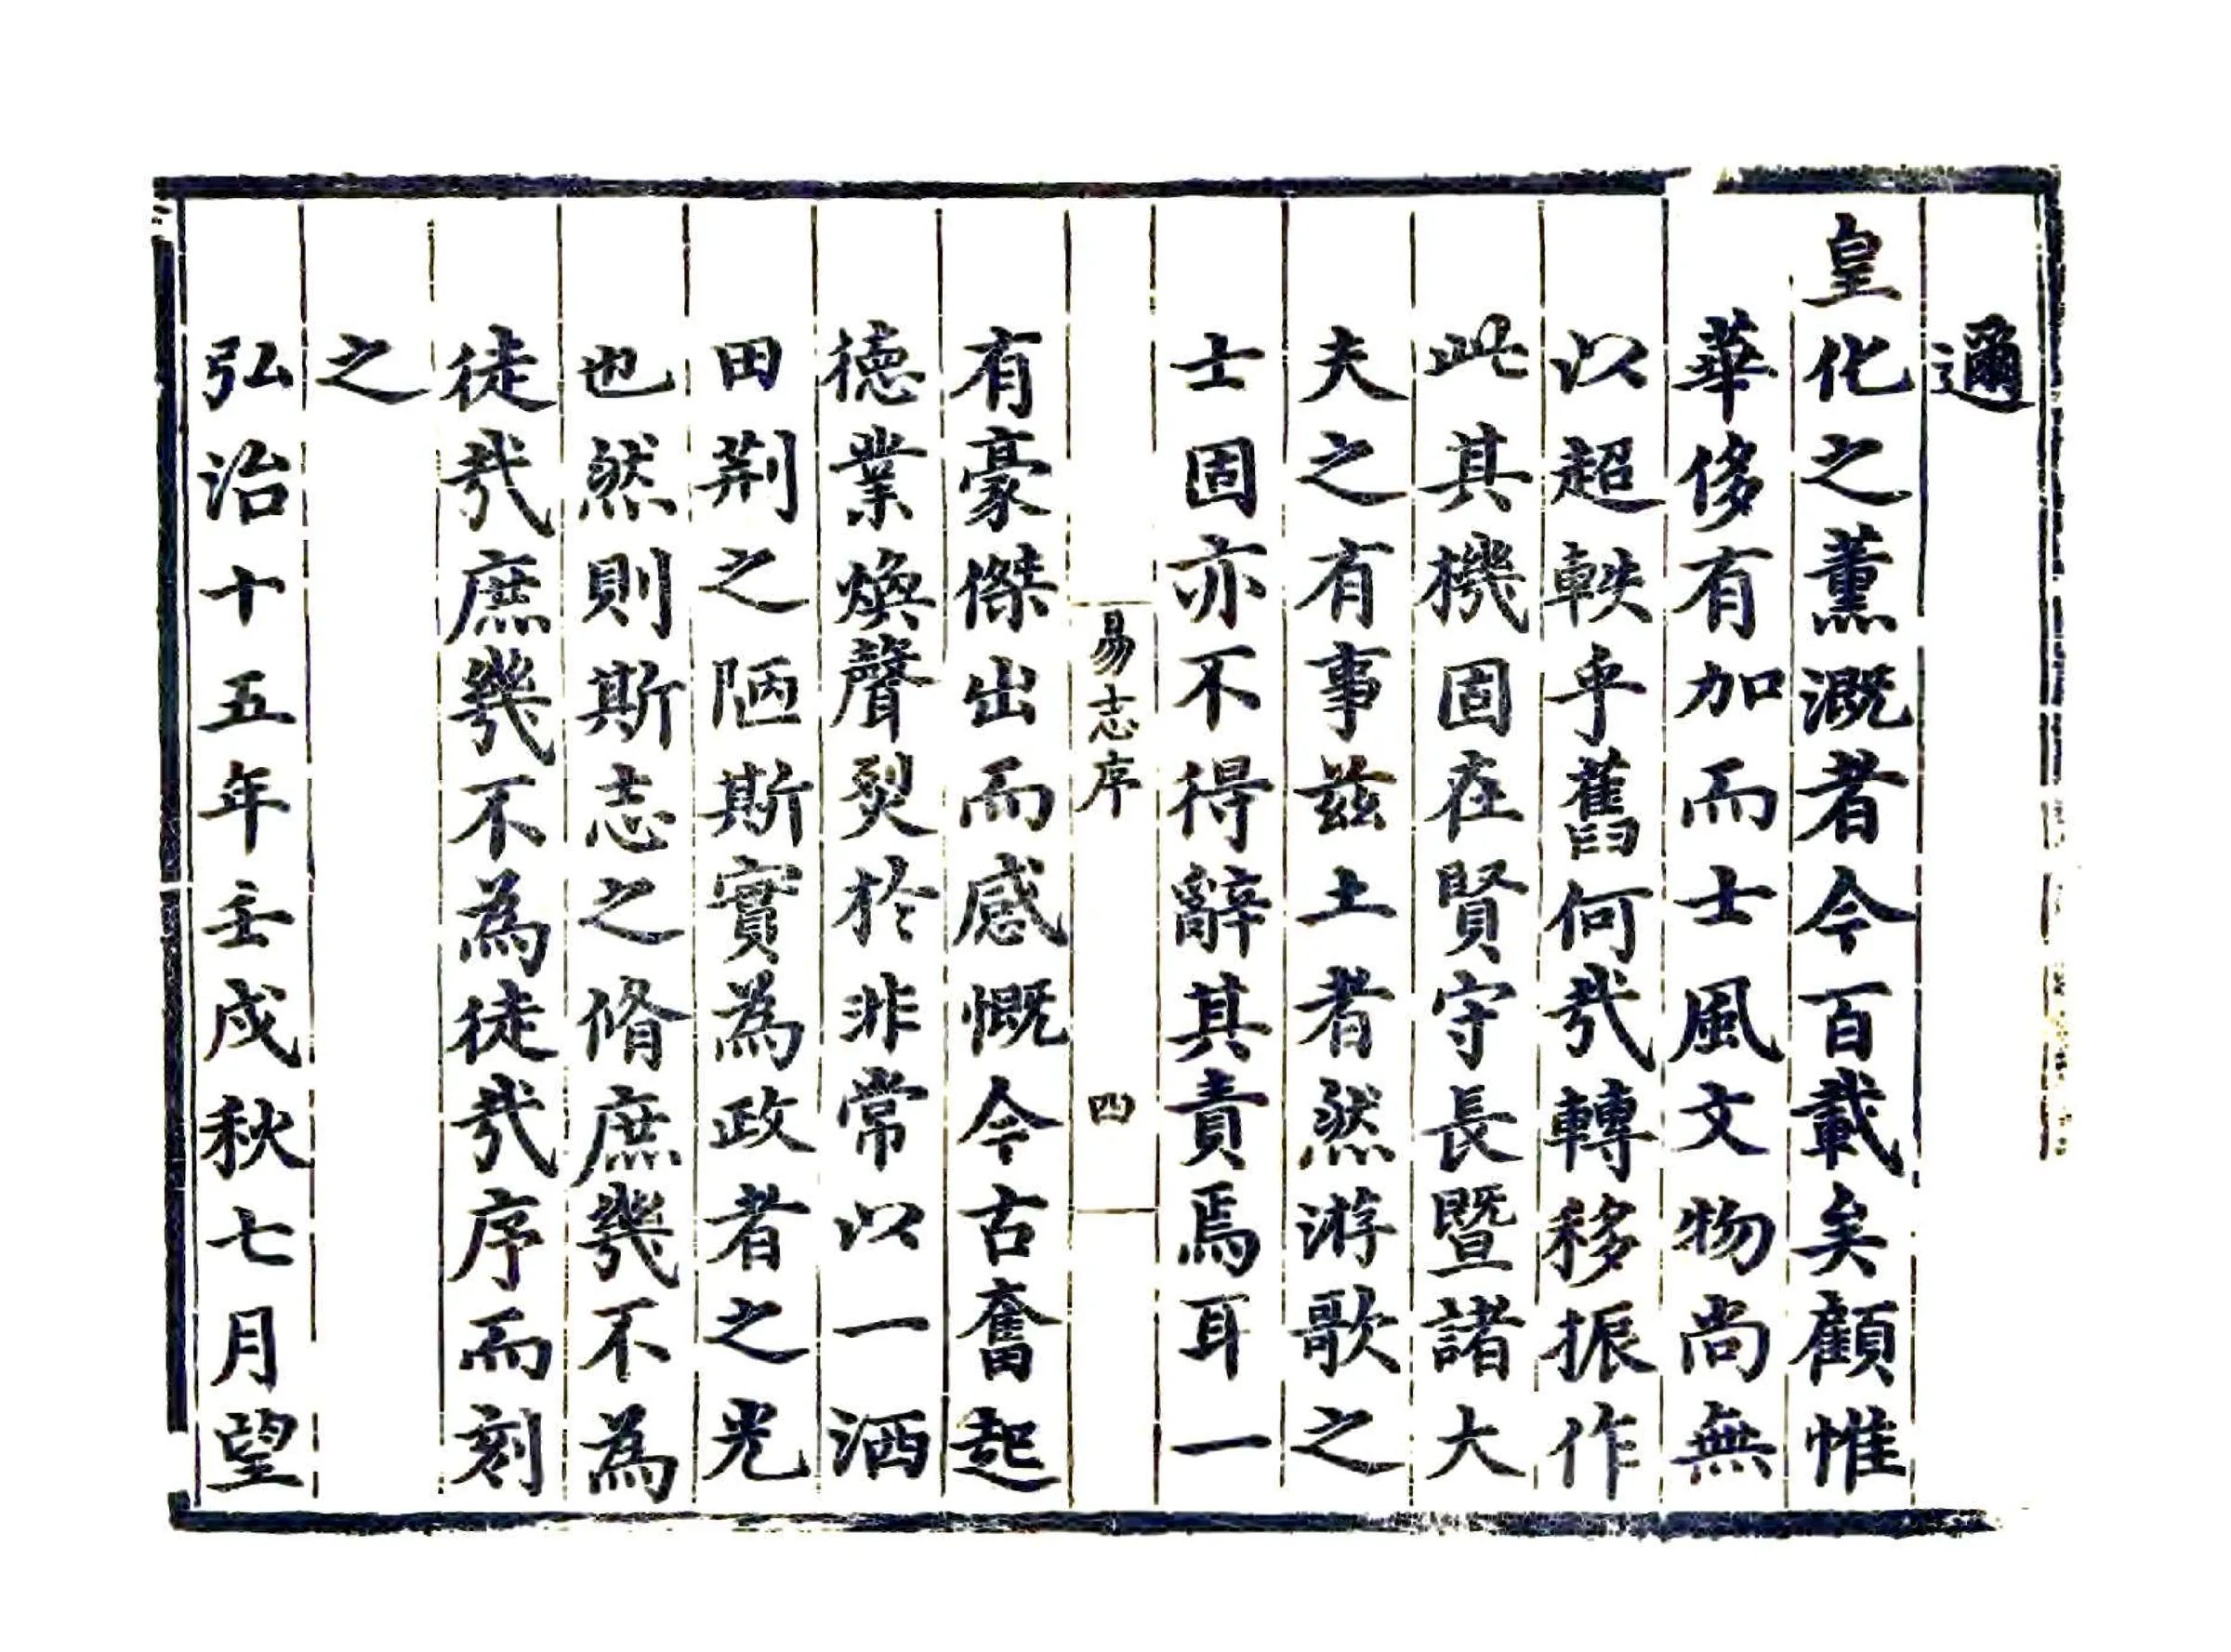 邇
皇化之薰漑者今百載矣顧惟
華侈有加而士風文物尚無
以超軼乎舊何㢤轉移振作
此其機固在賢守長暨諸大
夫之有事茲土者然游歌之
士固亦不得辭其責焉耳一
易志序 四
有豪傑出而感慨今古奮起
德業煥聲烈於非常以一洒
田荆之陋斯實為政者之光
也然則斯志之脩庶幾不為
徒㢤庶幾不為徒㢤序而刻
之
弘治十五年壬戌秋七月望